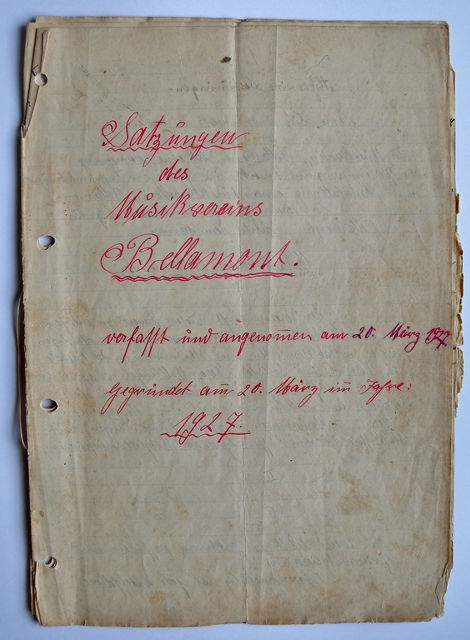 Satzungen
des
Musikvereins
Bellamont.
verfasst und angenommen am 20. März 1927
Gegründet am 20. März im Jahre:
1927.